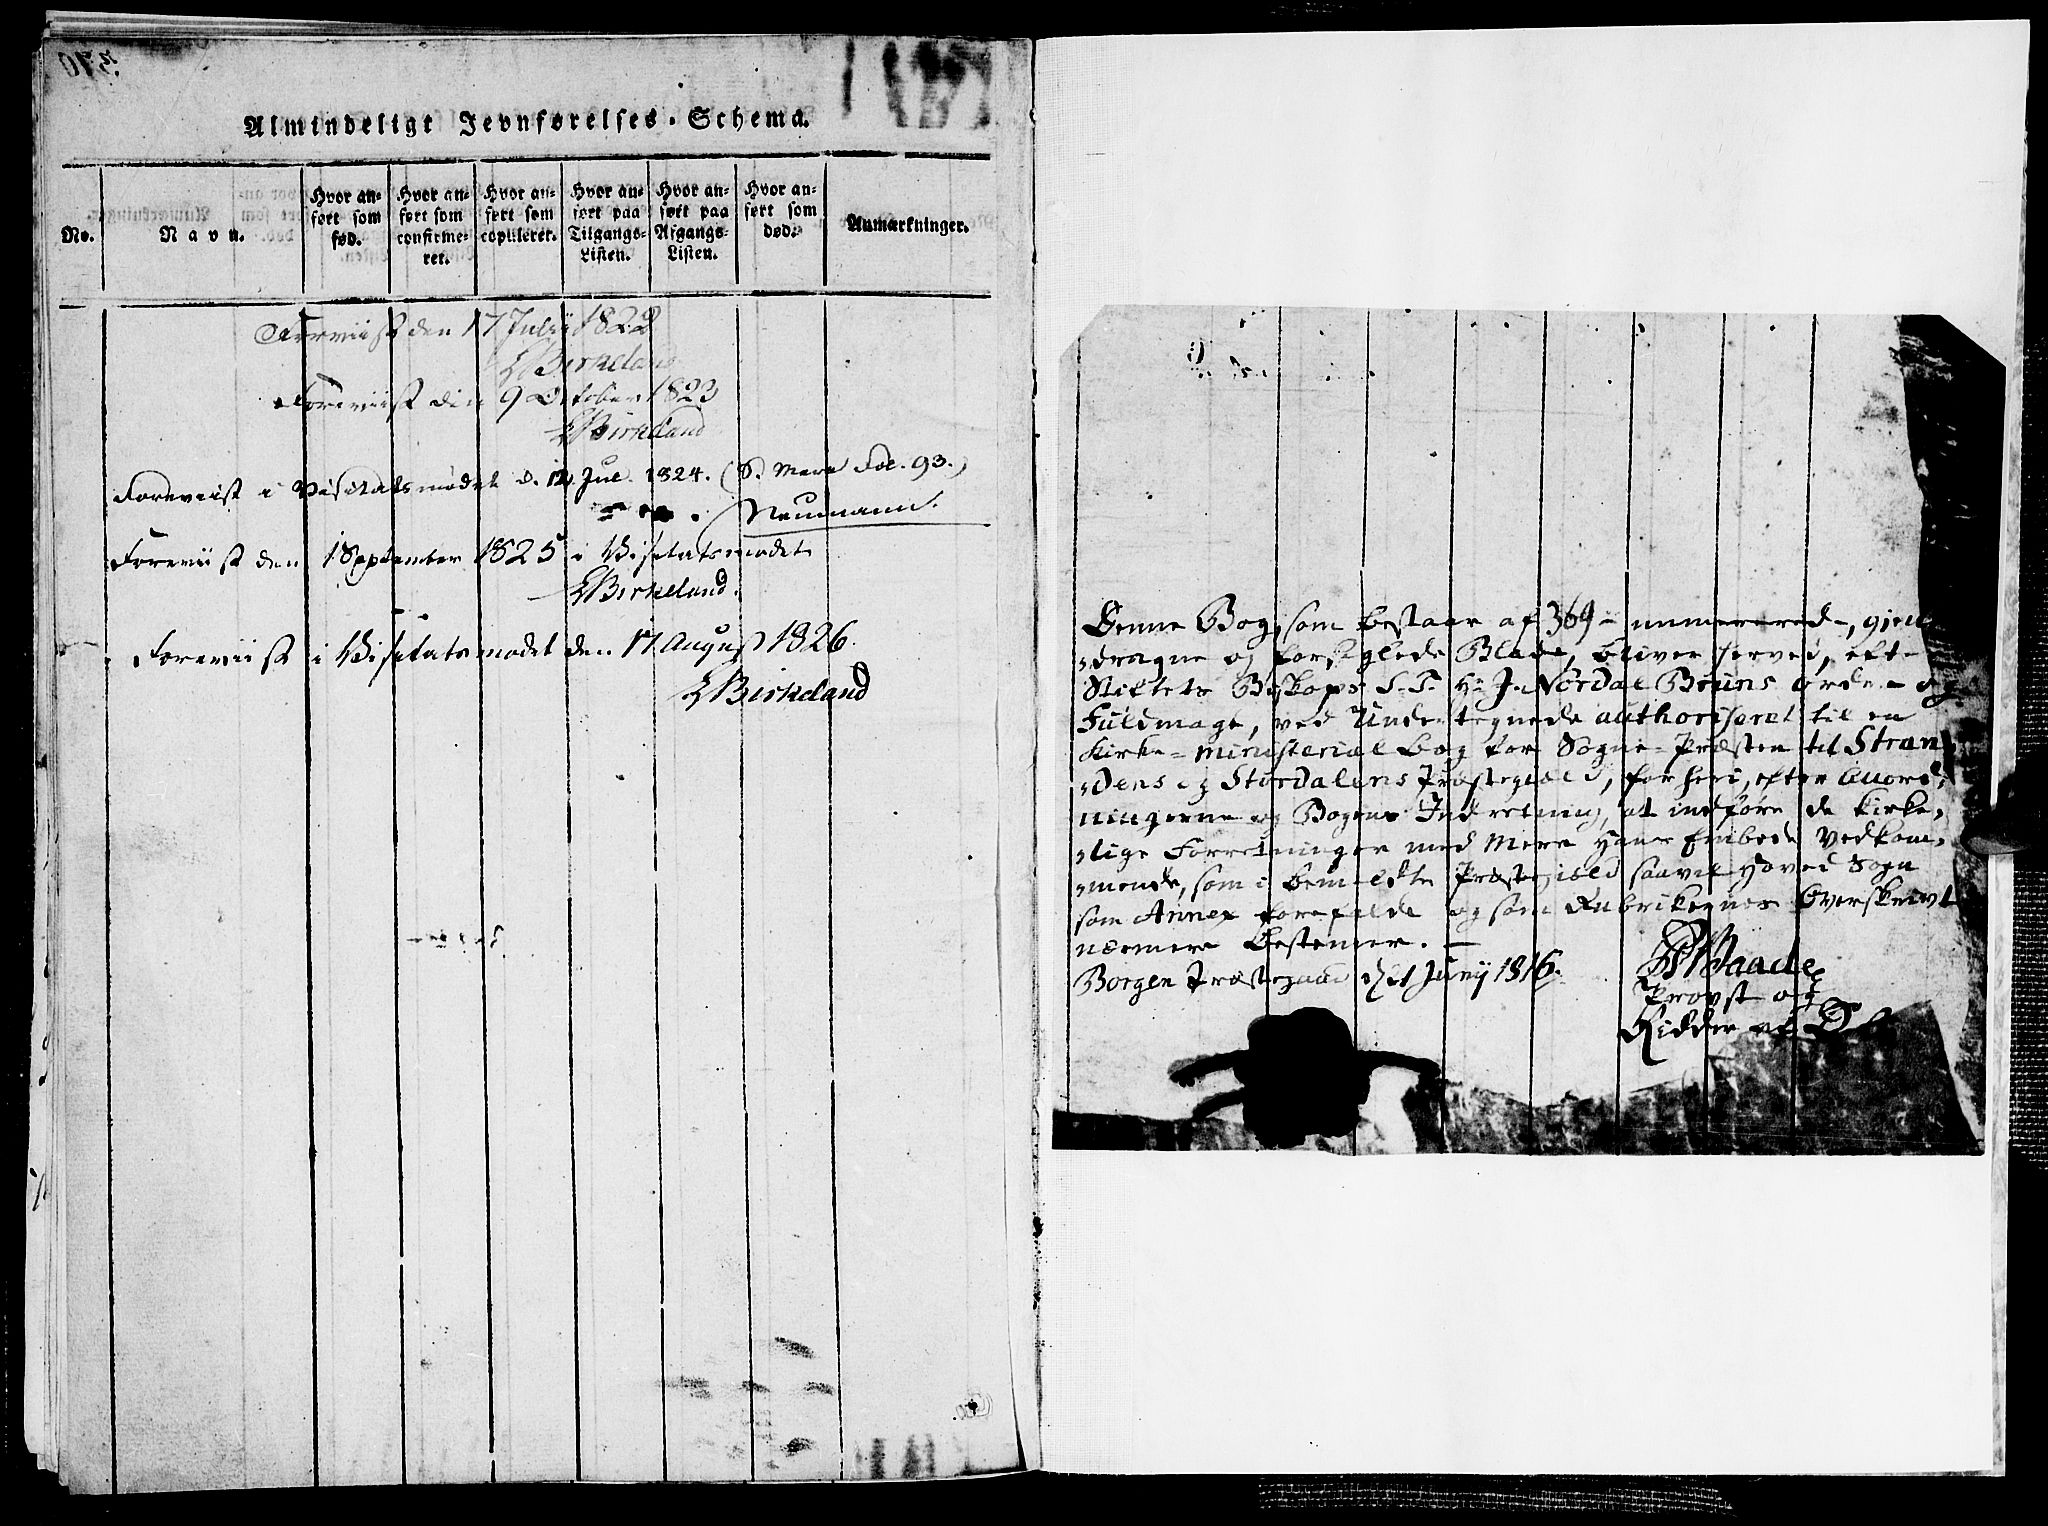 Almindeligt Jevnførelses-Schema.
No.
Navn.
Hvor an-
ført som
fød.
Hvor an-
ført som
confirme-
ret.
Hvor an-
ført som
copuleret.
Hvor an-
ført paa
Tilgangs-
Listen.
Hvor an-
ført paa
Afgangs-
Listen.
Hvor an-
ført som
død.
Anmærkninger.
Foreviist den 17 Julii 1822
Birkeland
Foreviist den 9 October 1823
Birkeland
Foreviist i Visitatsmødet d. 12 Jul. 1824. (S. mere Fol. 93.)
Neumann.
Foreviist den 1 September 1825 i Visitatsmødet
Birkeland.
Foreviist i Visitatsmødet den 17 August 1826.
Birkeland
Denne Bog, som bestaar af 369 - nummererede, gjen-
dragne og forseglede Blade, bliver herved, efter
Stiftets Biskops S. T. Hr J. Nordal Bruns Ordre og
Fuldmagt, ved Undertegnede authoriseret til en
Kirke-Ministerial bog for Sogne-Præsten til Stran-
dens og Stordalens Præstegield, for heri, efter Anord-
ningerne og Bogens Indretning, at indføre de kirke-
lige Forretninger med mere Hans Embede Vedkom-
mende, som i bemeldte Præstegield saavel Hoved Sogn
som Annex forefalde og som Rubrikernes Overskrivt
nærmere bestemer.
Borgen Præstegaard d. 21 Junij 1816.
Maade
Provst og
Ridder af D